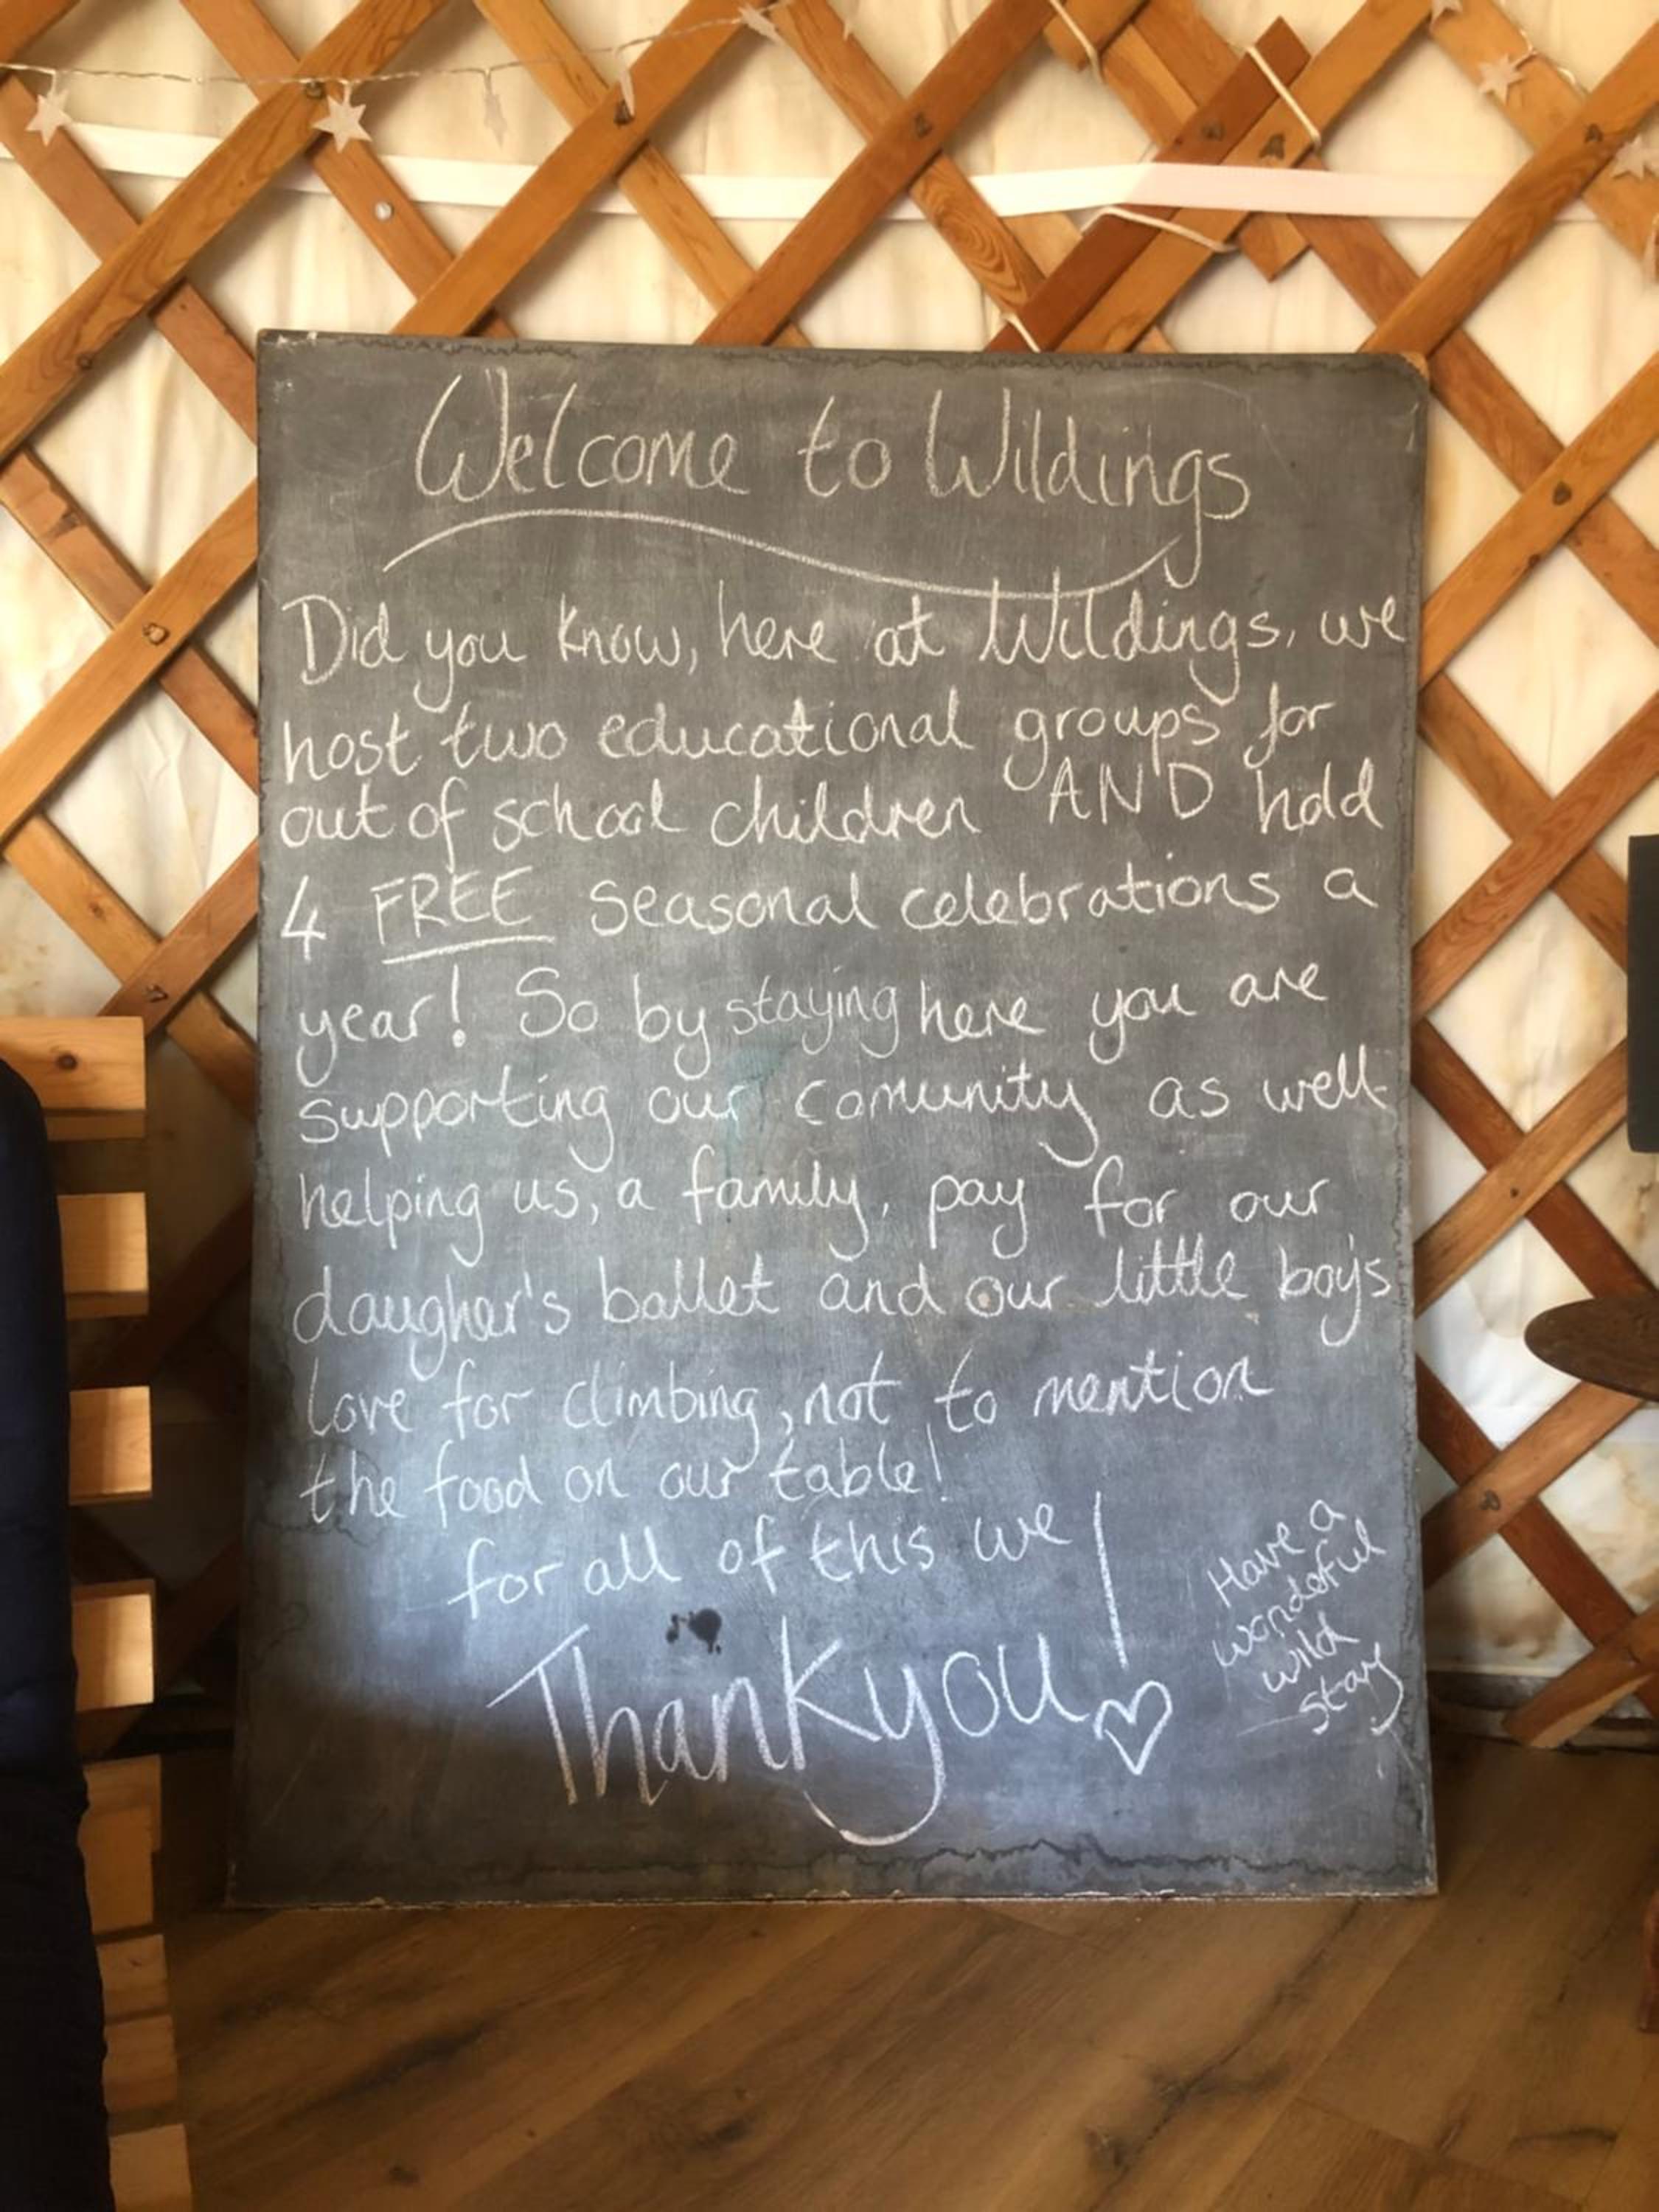 Welcome to Wildings
Did you know, here at Wildings, we
host two educational groups for
out of school children AND hold
4 FREE seasonal celebrations a
year! So by staying here you are
supporting our comunity as well
helping us, a family, pay for our
daugher's ballet and our little boy's
love for climbing, not to mention
the food on our table!
for all of this we
Thankyou!
Have a
wonderful
wild
stay